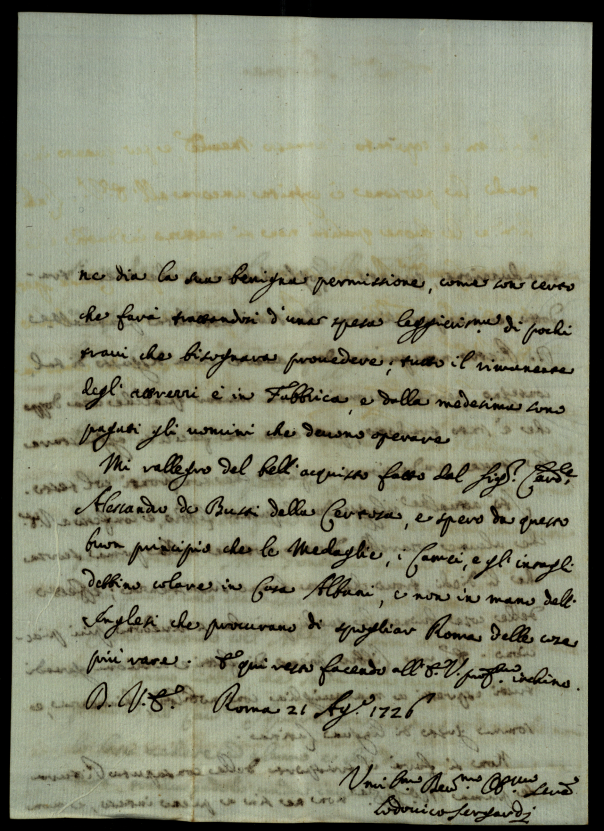 ne dia la sua benigna permissione, come son certo
che farà trattandosi d'una spesa leggierissma di pochi
travi che bisognarà provedere, tutto il rimanente
degli attrezzi è in Fabbrica, e dalla medesima sono
pagati gli uomini che devono operare
Mi rallegro del bell'acquisto fatto dal Sigr. Cardle
Alessandro de Busti della Certosa, e spero da questo
buon principio che le Medaglie, i Camei, e gl'intagli
debbino colare in Casa Albani, e non in mano dell'
Inglesi che procurano di spogliar Roma delle cose
più rare. E qui resto facendo all'E.V. profmo inchino.
D. V. E. Roma 21 Agto 1726
Umilmo Devmo Obmo Serve
Lodovico Sergardj